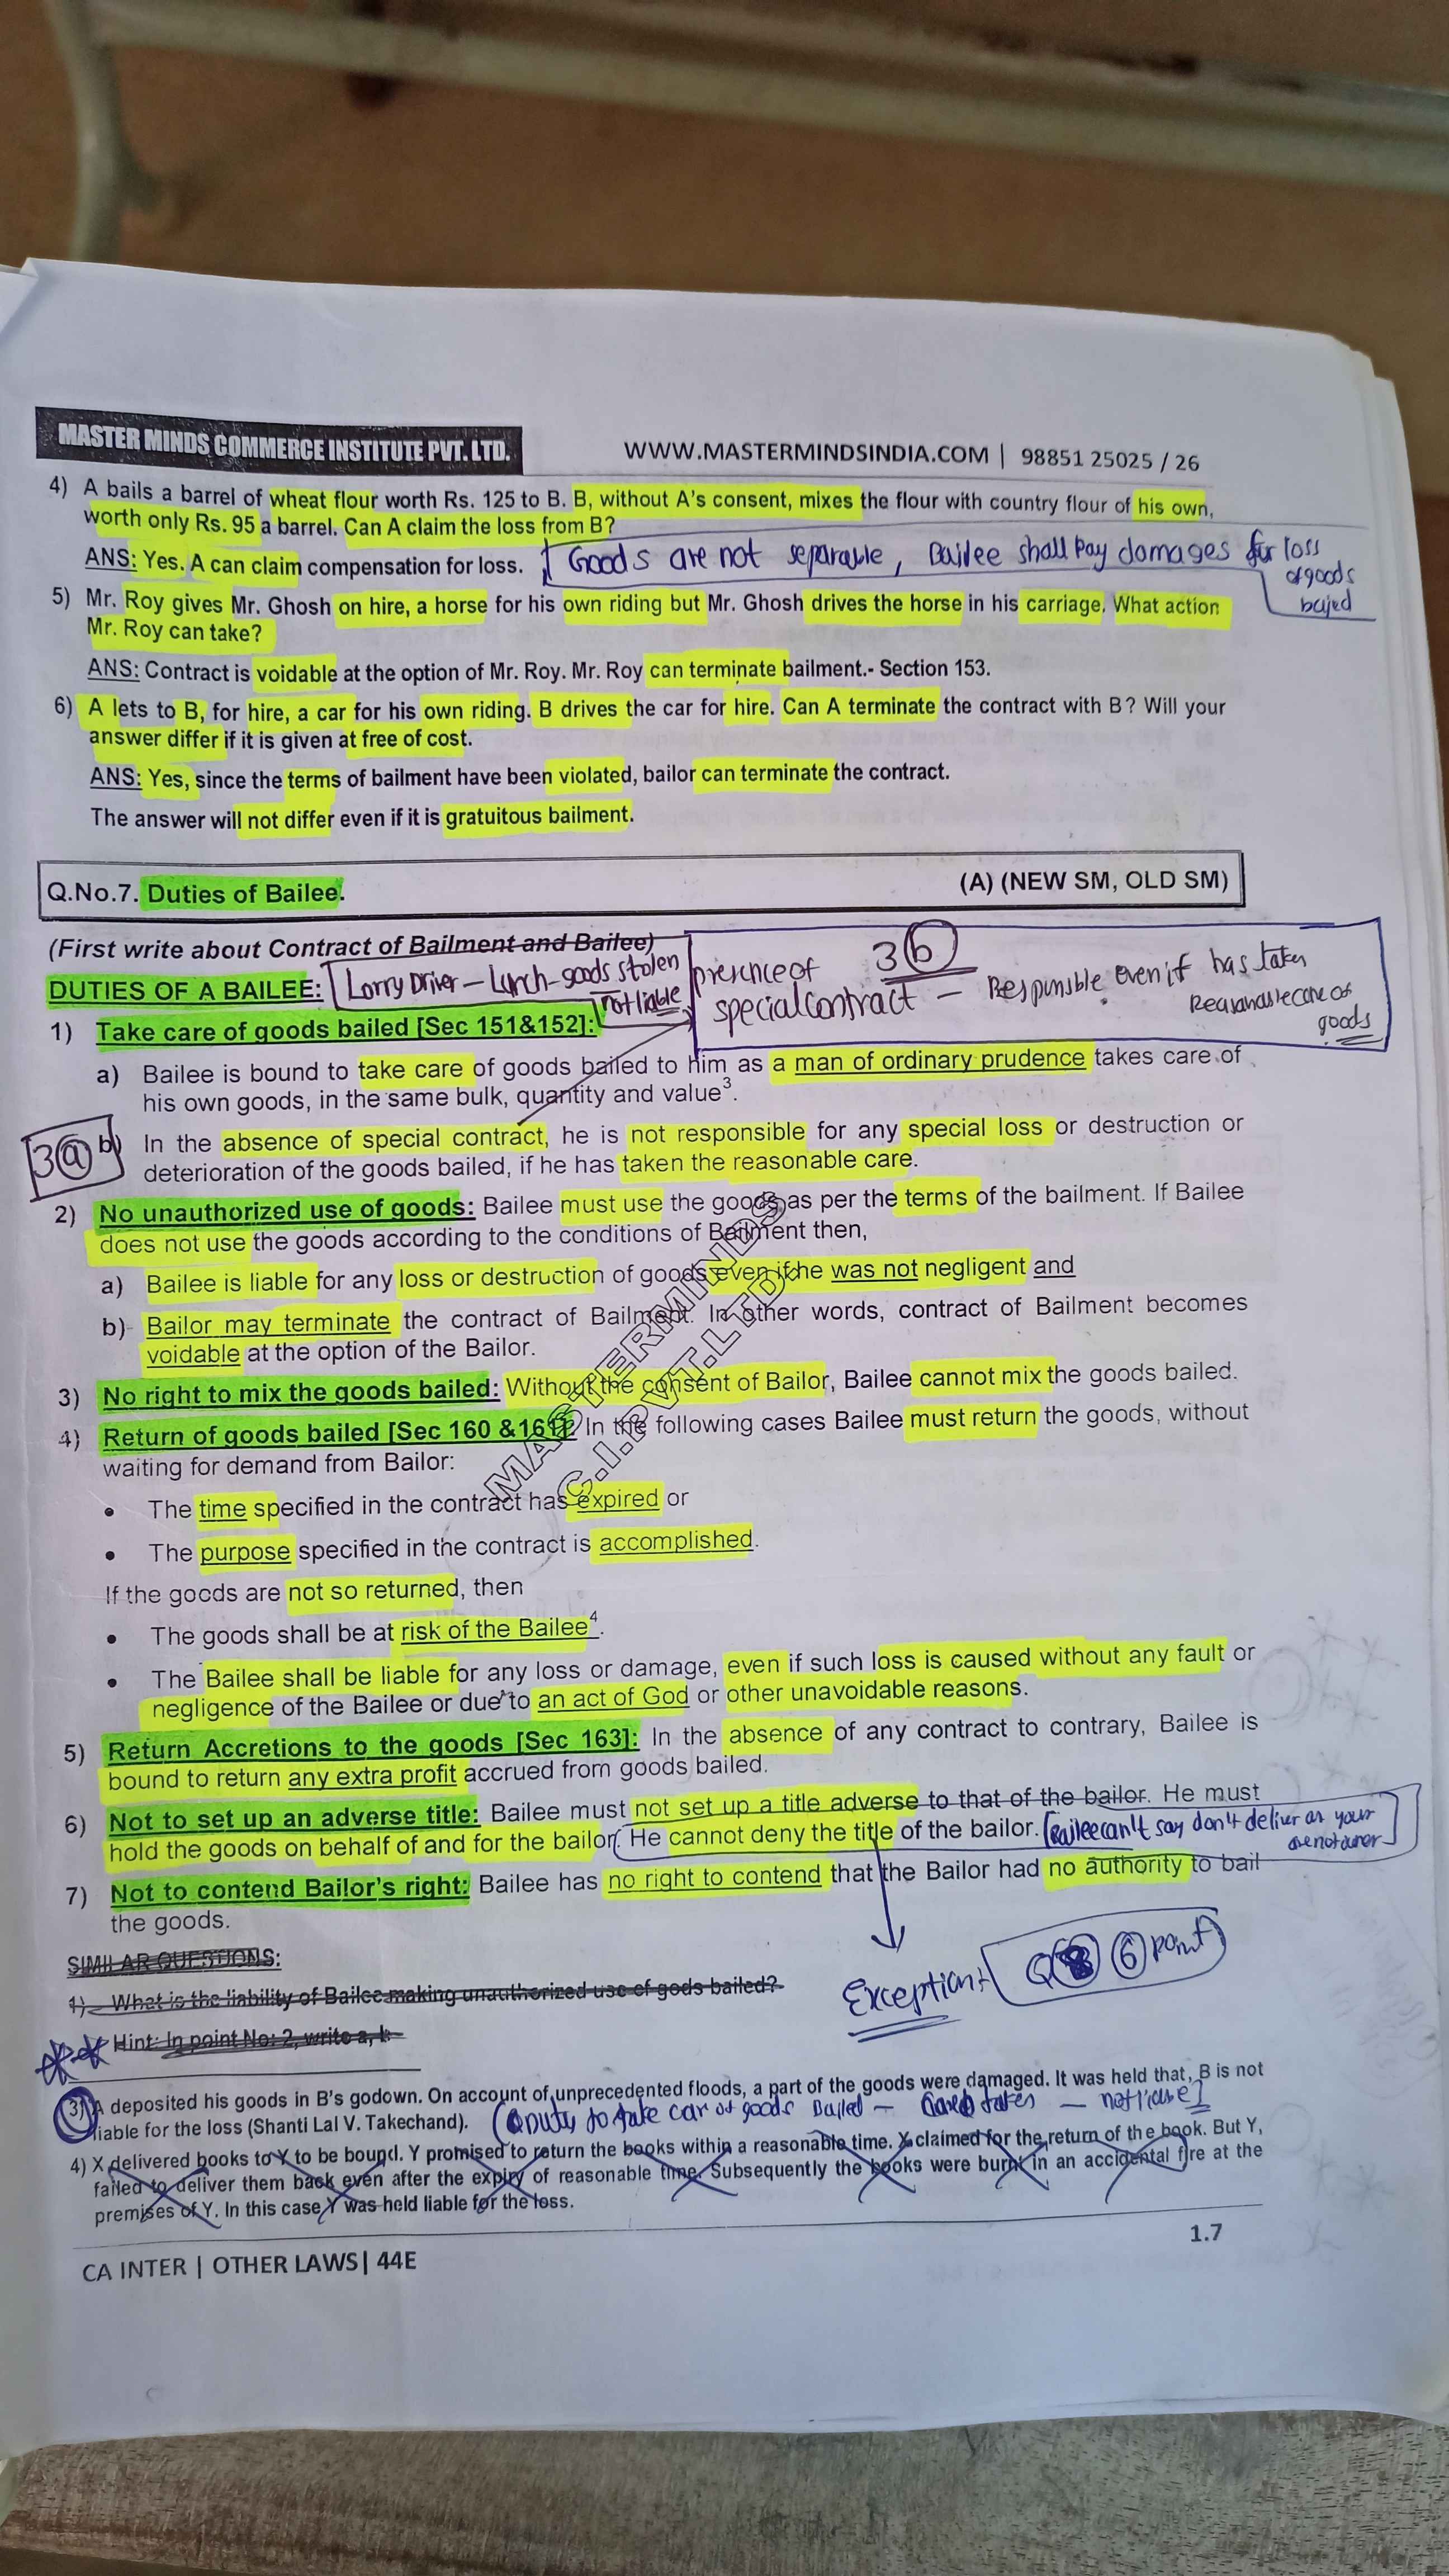 MASTER MINDS COMMERCE INSTITUTE PVT. LTD.
WWW.MASTERMINDSINDIA.COM | 98851 25025 / 26
4) A bails a barrel of wheat flour worth Rs. 125 to B. B, without A's consent, mixes the flour with country flour of his own,
worth only Rs. 95 a barrel. Can A claim the loss from B?
ANS: Yes. A can claim compensation for loss.
Goods are not separable, Bailee shall Pay damages for loss
of goods
bailed
5) Mr. Roy gives Mr. Ghosh on hire, a horse for his own riding but Mr. Ghosh drives the horse in his carriage. What action
Mr. Roy can take?
ANS: Contract is voidable at the option of Mr. Roy. Mr. Roy can terminate bailment.- Section 153.
6) A lets to B, for hire, a car for his own riding. B drives the car for hire. Can A terminate the contract with B? Will your
answer differ if it is given at free of cost.
ANS: Yes, since the terms of bailment have been violated, bailor can terminate the contract.
The answer will not differ even if it is gratuitous bailment.
Q.No.7. Duties of Bailee. (A) (NEW SM, OLD SM)
(First write about Contract of Bailment and Bailee)
DUTIES OF A BAILEE:
Lorry Driver – Lunch – goods stolen
not liable
3 b
presence of
special contract – Responsible even if has taken
Reasonable care of
goods
1) Take care of goods bailed [Sec 151&152]:
a) Bailee is bound to take care of goods bailed to him as a man of ordinary prudence takes care of
his own goods, in the same bulk, quantity and value3.
3 a
b) In the absence of special contract, he is not responsible for any special loss or destruction or
deterioration of the goods bailed, if he has taken the reasonable care.
2) No unauthorized use of goods: Bailee must use the goods as per the terms of the bailment. If Bailee
does not use the goods according to the conditions of Bailment then,
a) Bailee is liable for any loss or destruction of goods even if he was not negligent and
b) Bailor may terminate the contract of Bailment. In other words, contract of Bailment becomes
voidable at the option of the Bailor.
3) No right to mix the goods bailed: Without the consent of Bailor, Bailee cannot mix the goods bailed.
4) Return of goods bailed [Sec 160 &161]: In the following cases Bailee must return the goods, without
waiting for demand from Bailor:
• The time specified in the contract has expired or
• The purpose specified in the contract is accomplished.
If the goods are not so returned, then
• The goods shall be at risk of the Bailee4.
• The Bailee shall be liable for any loss or damage, even if such loss is caused without any fault or
negligence of the Bailee or due to an act of God or other unavoidable reasons.
MASTERMINDS
C.I.PVT.LTD
5) Return Accretions to the goods [Sec 163]: In the absence of any contract to contrary, Bailee is
bound to return any extra profit accrued from goods bailed.
6) Not to set up an adverse title: Bailee must not set up a title adverse to that of the bailor. He must
hold the goods on behalf of and for the bailor. He cannot deny the title of the bailor.
Bailee can't say don't deliver as your
are not owner
7) Not to contend Bailor's right: Bailee has no right to contend that the Bailor had no authority to bail
the goods.
Exception:- Q 8 6 point
SIMILAR QUESTIONS:
1) What is the liability of Bailee making unauthorized use of gods bailed?
Hint: In point No: 2, write a, b
3) A deposited his goods in B's godown. On account of unprecedented floods, a part of the goods were damaged. It was held that, B is not
liable for the loss (Shanti Lal V. Takechand).
Duty to take car of goods Bailed – taken – not liable
4) X delivered books to Y to be bound. Y promised to return the books within a reasonable time. X claimed for the return of the book. But Y,
failed to deliver them back even after the expiry of reasonable time. Subsequently the books were burnt in an accidental fire at the
premises of Y. In this case Y was held liable for the loss.
1.7
CA INTER | OTHER LAWS| 44E